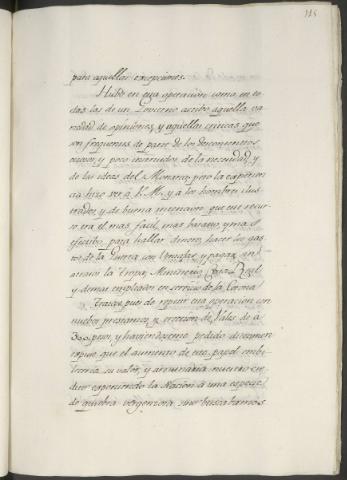 115
para aquellas excepciones.
Hubo en esa operación como en to
das las de un Govierno activo aquella va
riedad de opiniones, y aquellas criticas que
son freqüentes de parte de los descontentos
ociosos, y poco instruidos de la necesidad, y
de las ideas del Monarca; pero la experien
cia hizo ver á V. M. y á los hombres ilus
trados, y de buena intencion que ese recur
so era el mas facil, mas barato, y mas
efectivo para hallar dinero, hacer los gas
tos de la Guerra con ventajas, y pagar
la Tropa, Ministerio, Casa Real
y demas empleados en servicio de la Corona
Tratose pues de repetir esa operación con
nuevos prestamos, y creación de Vales de á
300 pesos, y haviendoseme pedido dictamen
expuse que el aumento de este papel envi
leceria su valor, y arruinaria nuestro cre
dito exponiendo la Nación á una especie
de quiebra vergonzosa, sino buscabamos